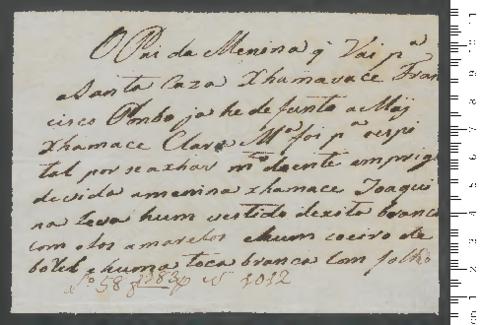 O Pai da Menina q̃ Vai pª
a Santa Caza Xhamavace Fran
cisco Pombo ja he defunto a Maỹ
Xhamace Clara Mª foi pª ospi
tal por se axhar mᵗᵒ doente em prigo
devida a menina xhamace Joaqui
na leva hum vestido dexita branco
com olos amarelos ehum coeiro de
ehuma toca branca Com folho
58 1012